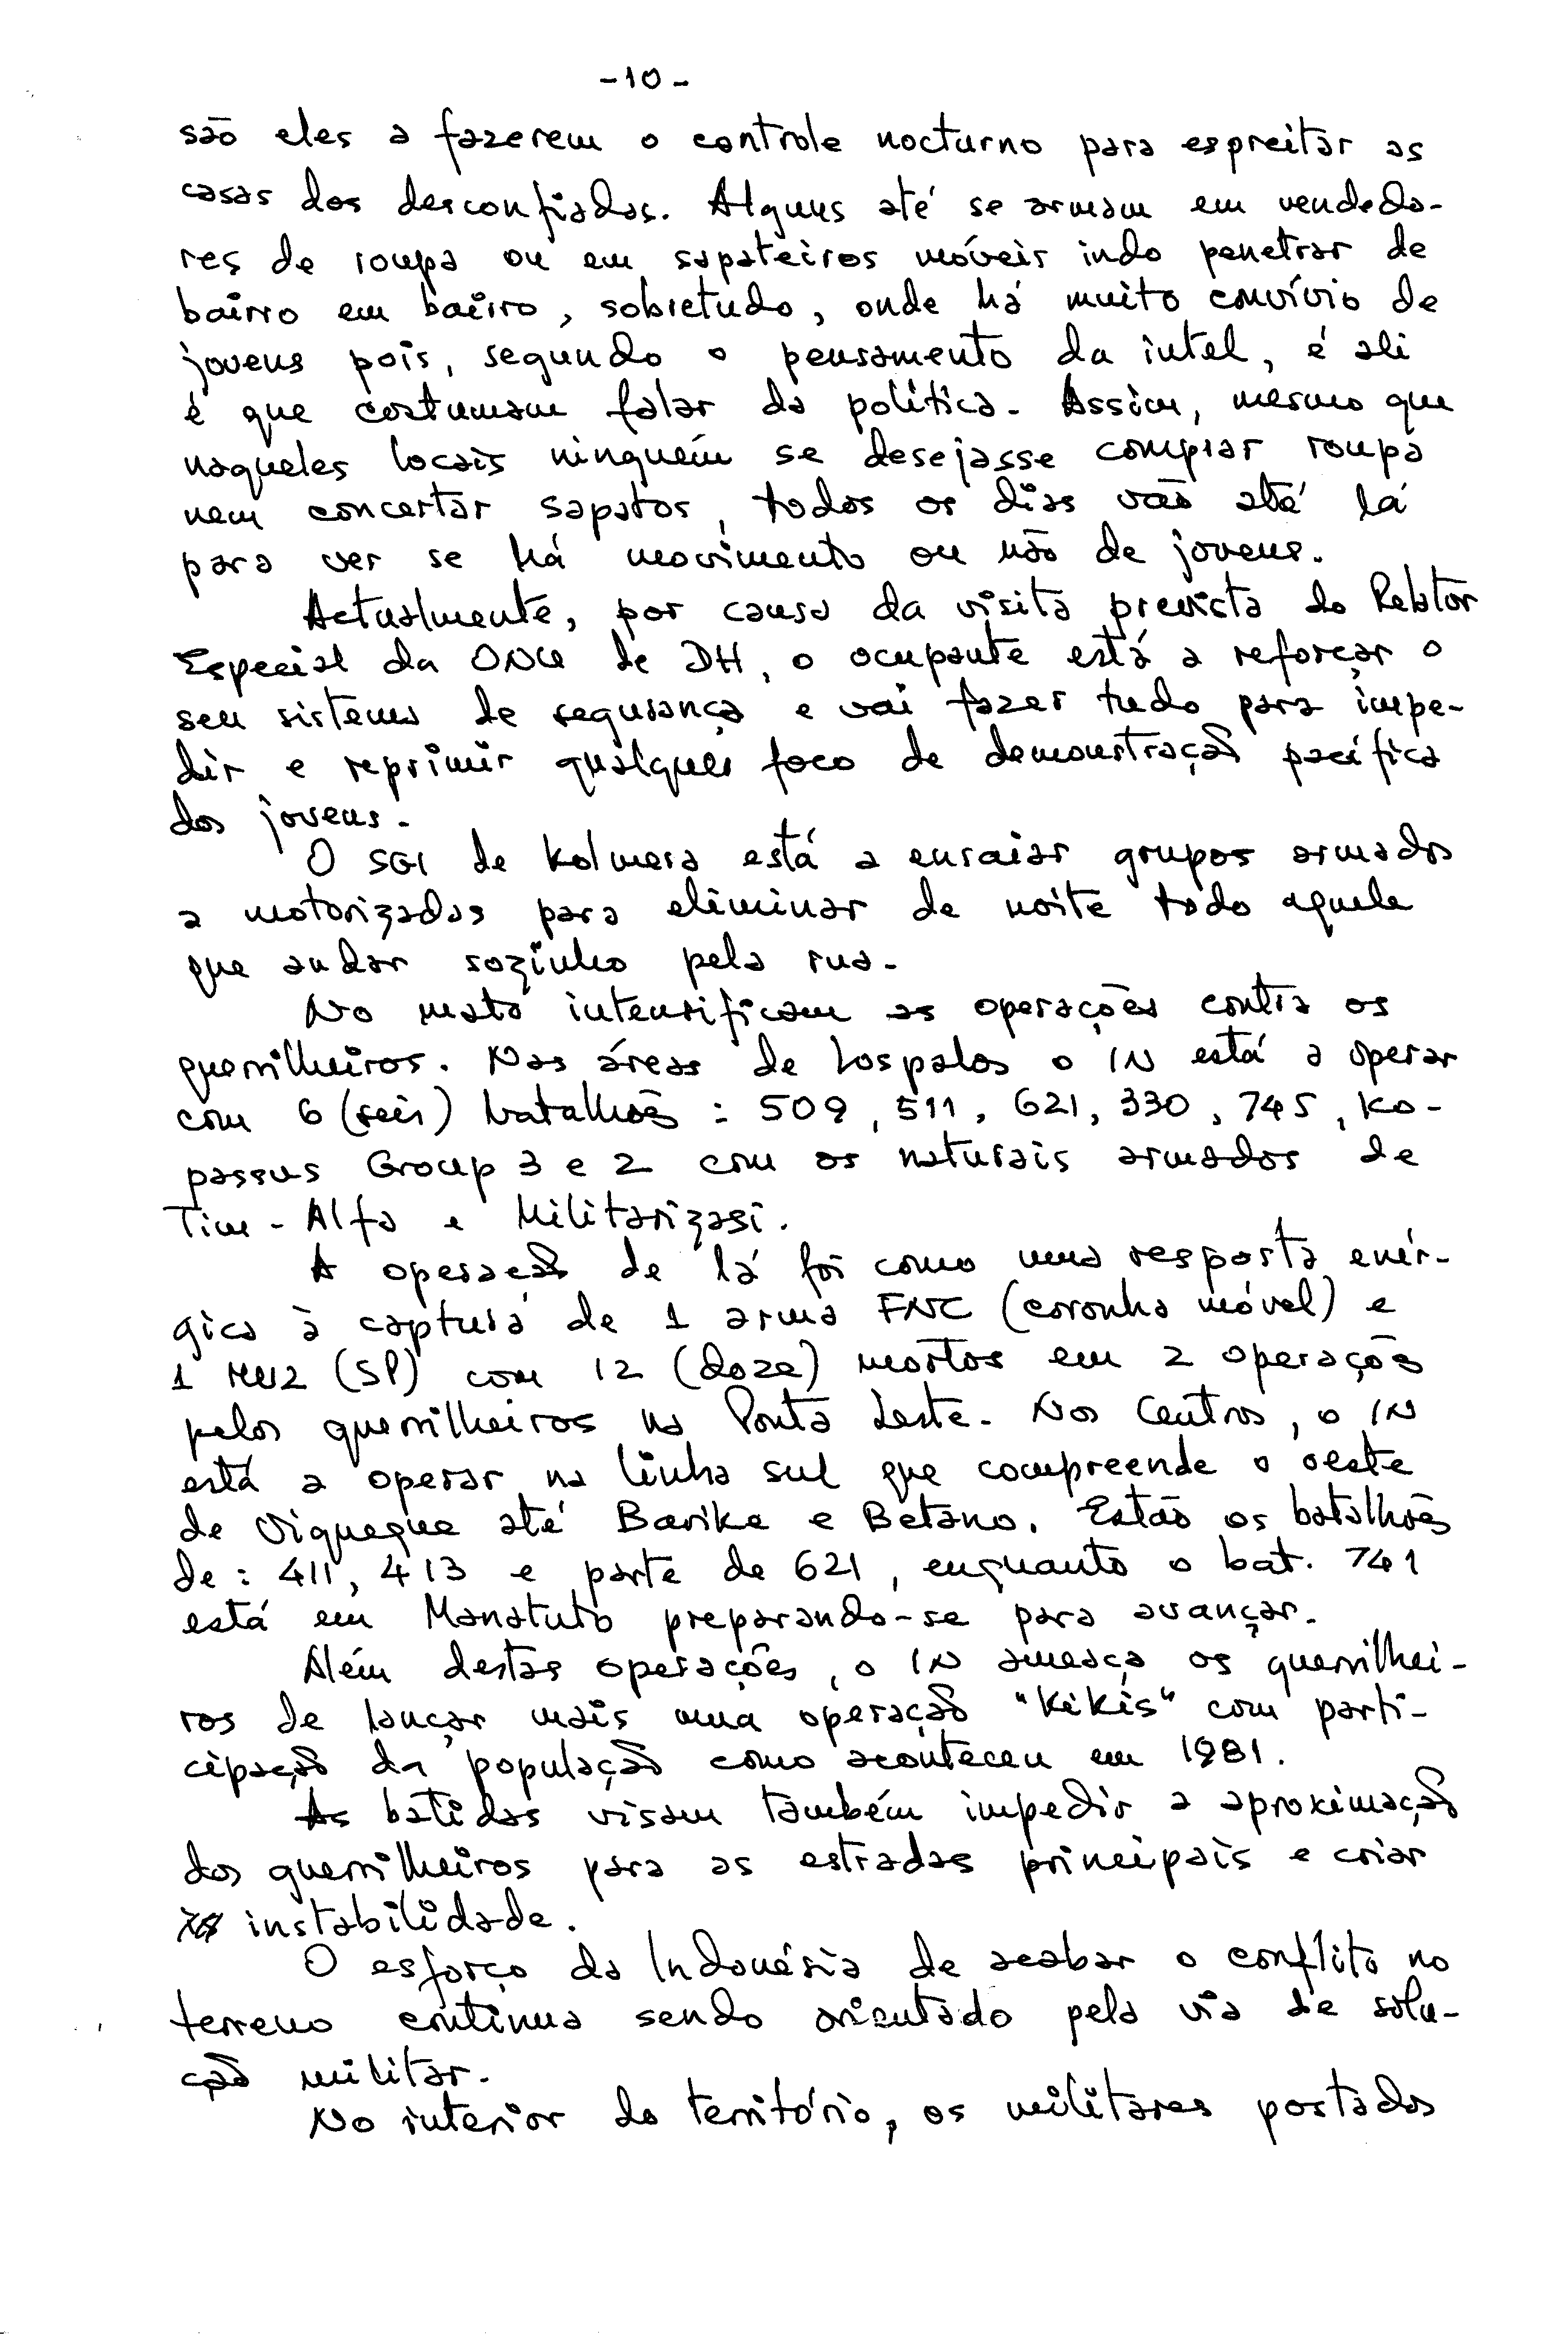 -10-
são eles a fazerem o controle nocturno para espreitar as
casas dos desconfiados. Alguns até se armam em vendedo-
res de roupa ou em sapateiros móveis indo penetrar de
bairro em bairro, sobretudo, onde há muito convívio de
jovens pois, segundo o pensamento da intel, é ali
é que costumam falar da política. Assim, mesmo que
naqueles locais ninguém se desejasse comprar roupa
nem concertar sapatos, todos os dias vão até lá
para ver se há movimento ou não de jovens.
Actualmente, por causa da visita prevista do Relator
Especial da ONU de DH, o ocupante está a reforçar o
seu sistema de segurança e vai fazer tudo para impe-
dir e reprimir qualquer foco de demonstração pacífica
dos jovens.
O SGI de Kolmera está a ensaiar grupos armados
a motorizadas para eliminar de noite todo aquele
que andar sozinho pela rua.
No mato intensificam as operações contra os
guerrilheiros. Nas áreas de Lospalos o IN está a operar
com 6 (seis) batalhões: 509, 511, 621, 330, 745, Ko-
passus Group 3 e 2 com os naturais armados de
Tim-Alfa e Militarizasi.
A operação de lá foi como uma resposta enér-
gica à captura de 1 arma FNC (coronha móvel) e
1 (SP) com 12 (doze) mortos em 2 operações
pelos guerrilheiros na Ponta Leste. Nos Centros, o IN
está a operar na linha sul que compreende o oeste
de Viqueque até Barike e Betano. Estão os batalhões
de: 411, 413 e parte de 621, enquanto o bat. 741
está em Manatuto preparando-se para avançar.
Além destas operações, o IN ameaça os guerrilhei-
ros de lançar mais uma operação "Kikis" com parti-
cipação da população como aconteceu em 1981.
As batidas visam também impedir a aproximação
dos guerrilheiros para as estradas principais e criar
instabilidade.
O esforço da Indonésia de acabar o conflito no
terreno continua sendo orientado pela via de solu-
ção militar.
No interior do território, os militares postados